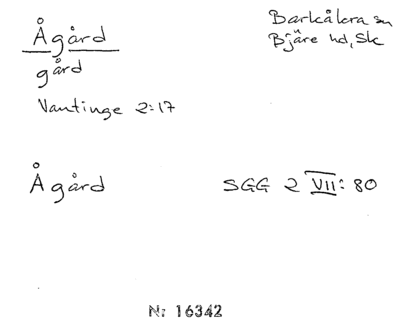 Ågård
gård
Vantinge 2:17
Barkåkra sn
Bjäre hd, Sk
Ågård
SGG 2 VII: 80
Nr 16342